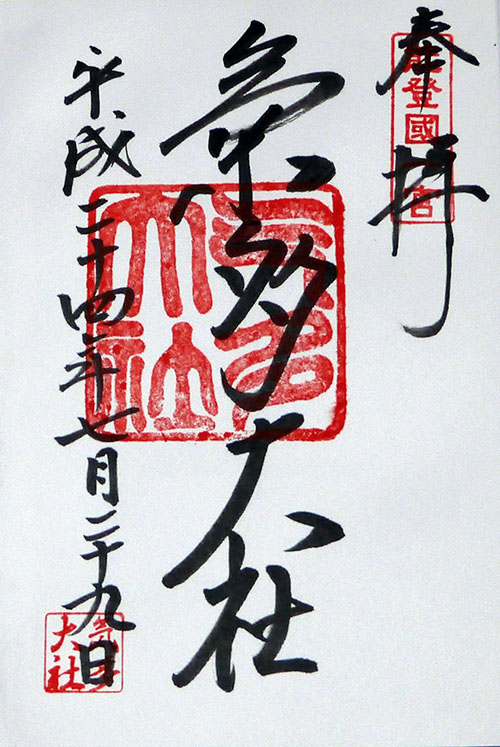 奉拝
能登國一宮
氣多大社
氣多大社
平成二十四年七月二十九日
氣多大社